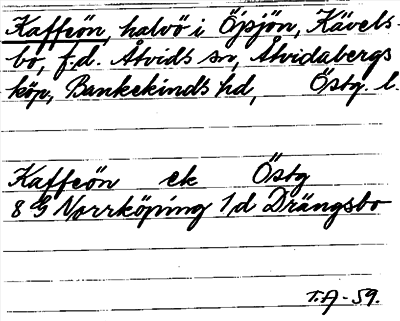 Kaffeön, halvö i Öjsjön, Kävels-
bo, f.d. Åtvids sn, Åtvidabergs
köp, Bankekinds hd, Östg. l.
Kaffeön ek Östg
8 G Norrköping 1d Drängsbo
T.A-59.